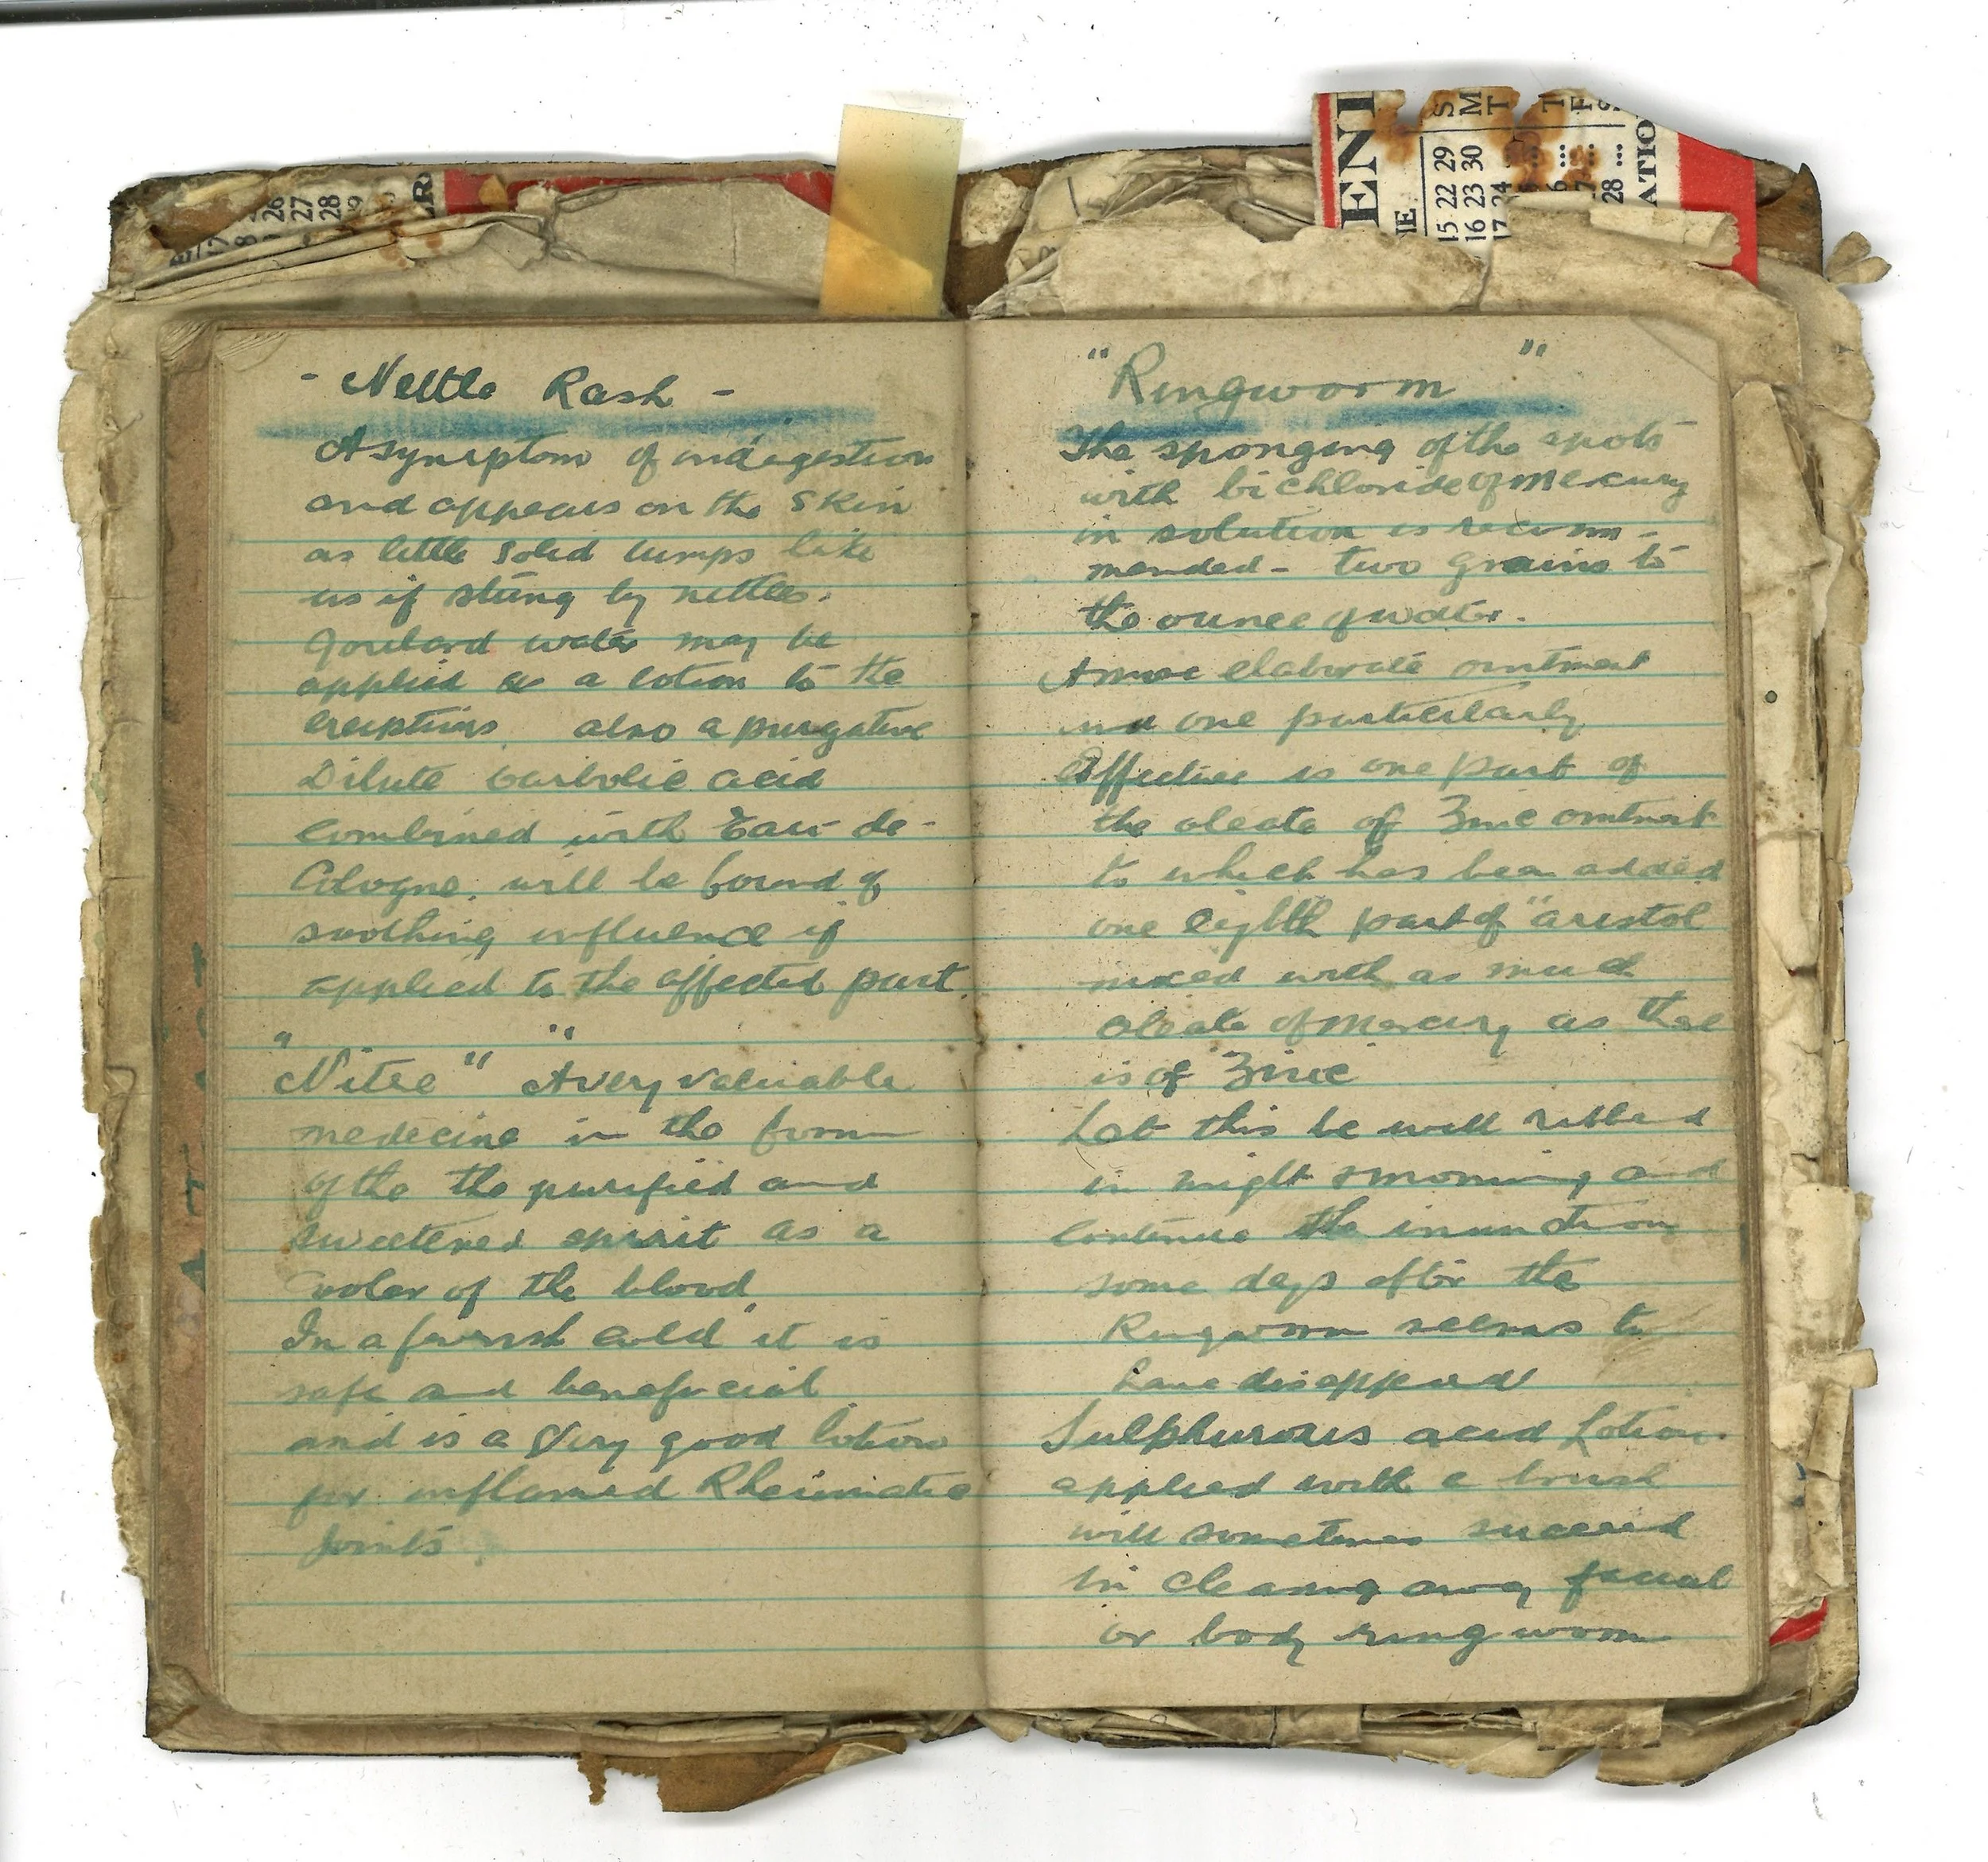 - Nettle Rash -
A symptom of indigestion
and appears on the skin
as little solid lumps like
as if stung by nettles.
Goulard water may be
applied as a lotion to the
eruptions. also a purgative
Dilute carbolic acid
combined with Eau-de-
Cologne. will be found of
soothing influence if
applied to the affected part.
" "
Nitre" A very valuable
medecine in the form
of the the purified and
sweetened spirit as a
cooler of the blood
In a feverish cold it is
safe and beneficial
and is a very good lotion
for inflamed Rheumatic
joints.
"Ringworm"
The sponging of the spots
with bichloride of mercury
in solution is recom-
mended - two grains to
the ounce of water.
A more elaborate ointment
and one particularly
Effective is one part of
the oleate of Zinc ointment
to which has been added
one eighth part of "aristol
mixed with as much
oleate of mercury as there
is of Zinc
Let this be well rubbed
in night & morning and
continue the inunction
some days after the
Ringworm seems to
have disappeard
Sulphurous acid Lotion.
applied with a brush
will sometimes succeed
in clearing away facial
or body ringworm
ENT
S M T T F
15 22 29
16 23 30
17 24
28 ...
ATIO
26
27
28